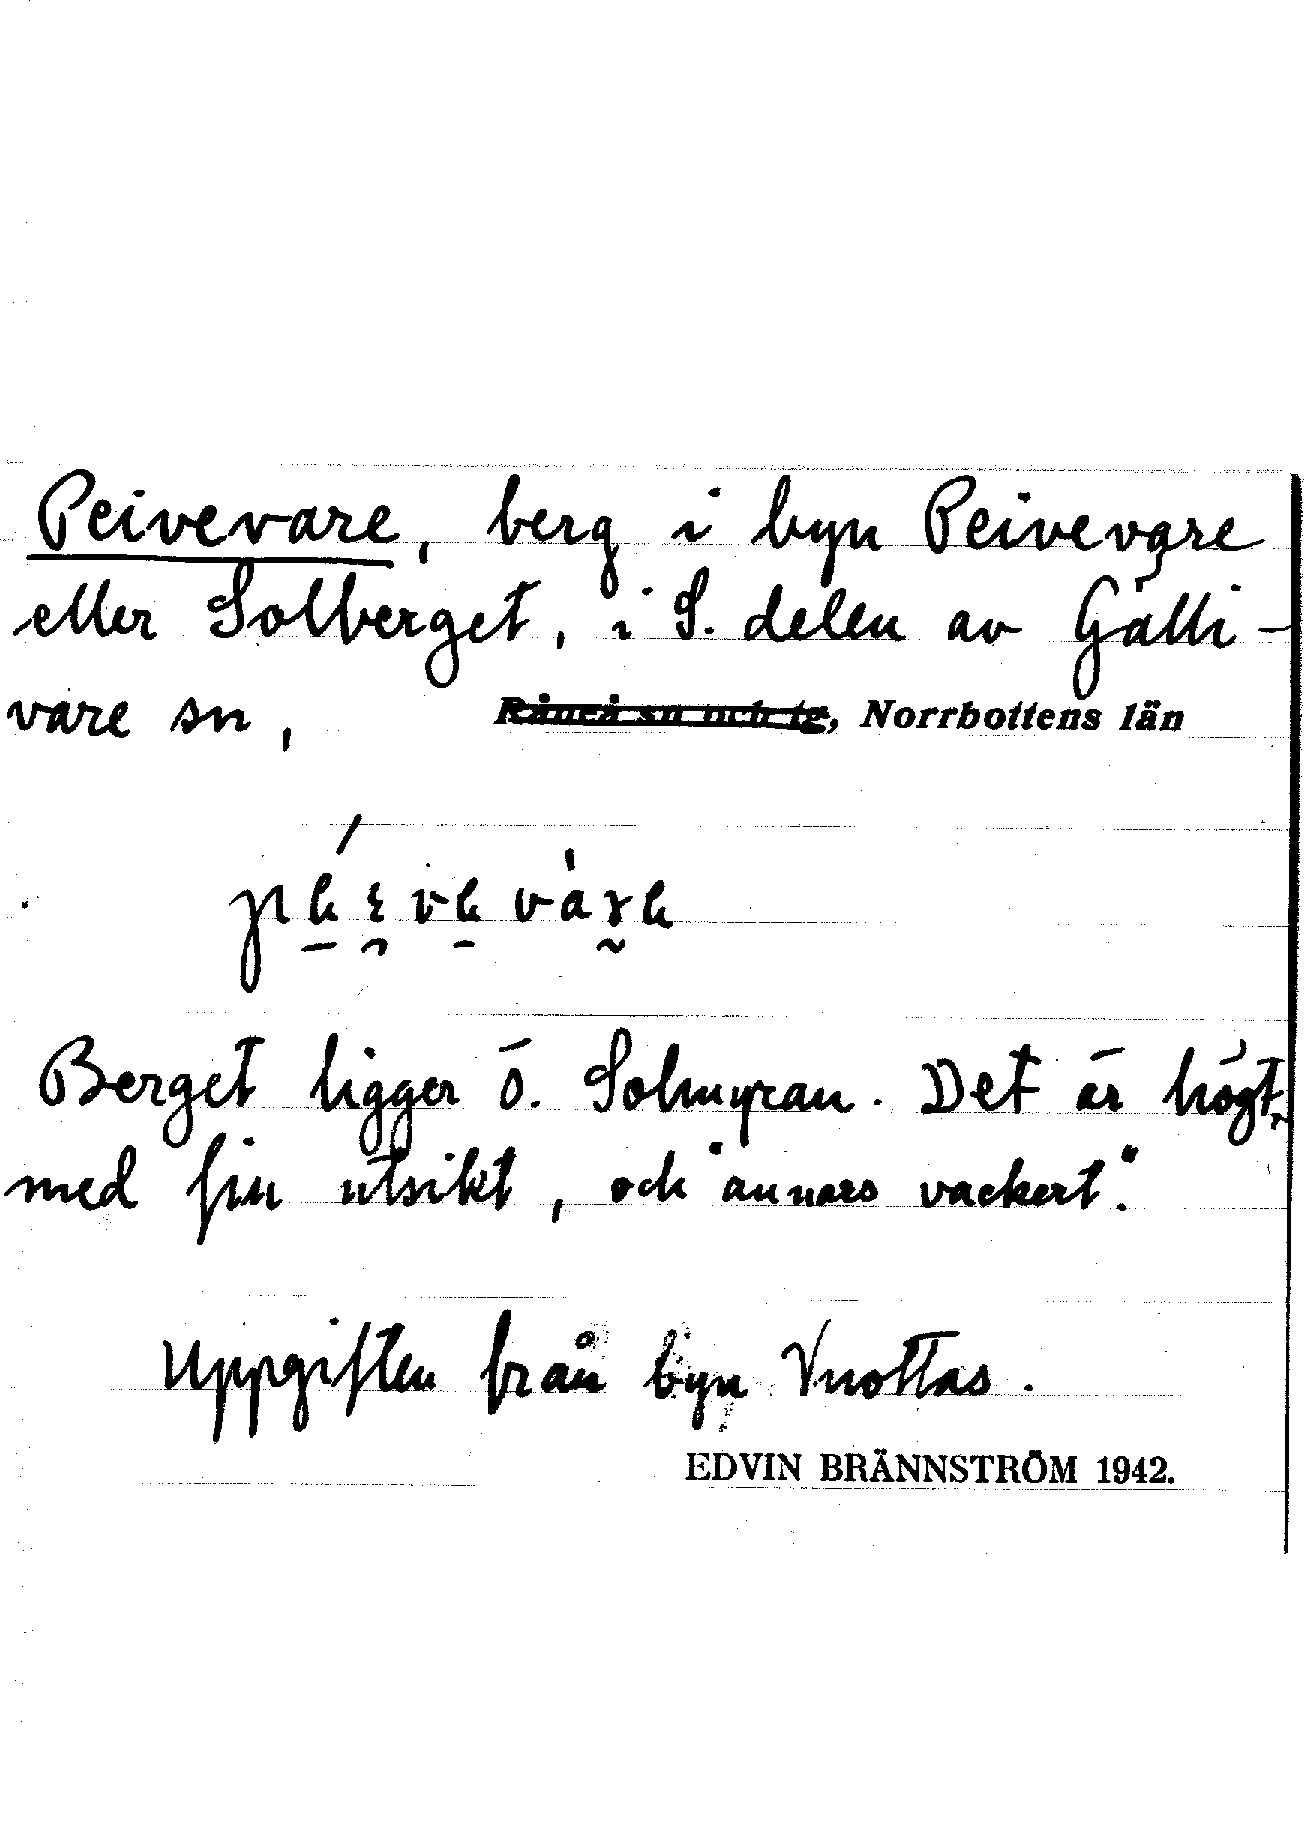 Peivevare, berg i byn Peivevare
eller Solberget, i S. delen av Gälli-
vare sn, Råneå sn och tg, Norrbottens län
Berget ligger ö. Solmyran. Det är högt,
med fin utsikt, och "annars vackert".
Uppgiften från byn Vuottas.
EDVIN BRÄNNSTRÖM 1942.